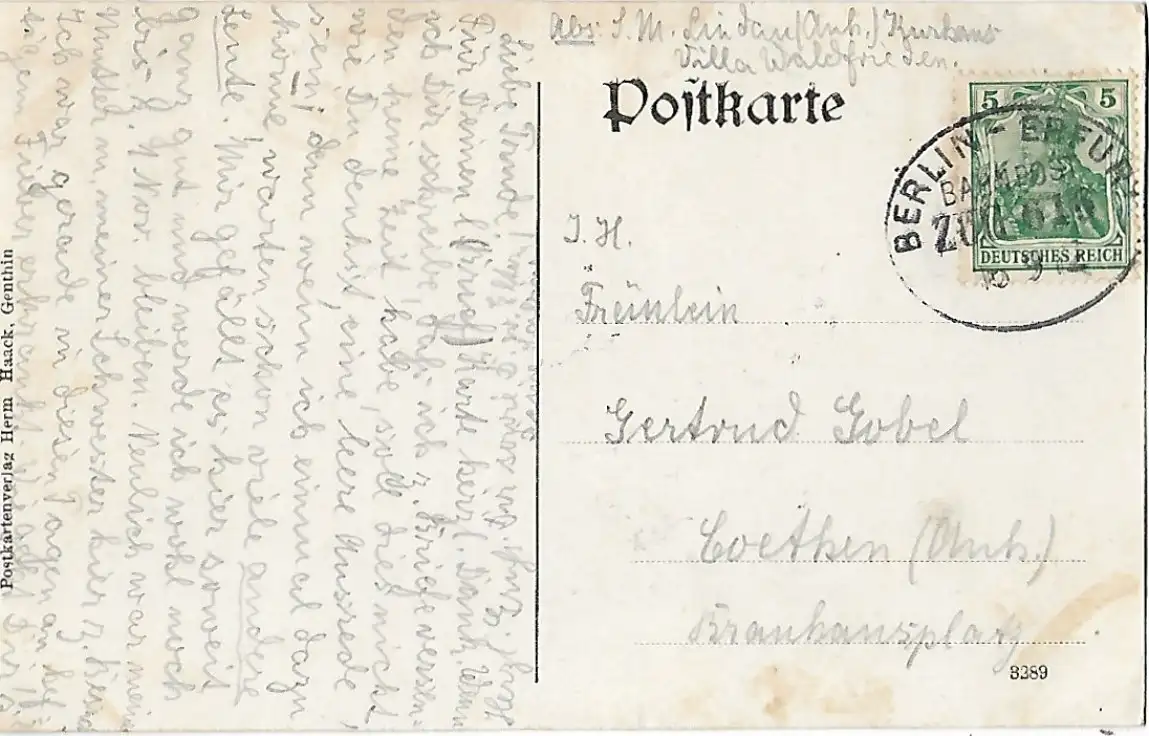 Abs: S. M. Lindau (Anh.) Kurhaus
Villa Waldfrieden.
Postkarte
5 5
DEUTSCHES REICH
BERLIN - ERFURT
BAHNPOST
ZUG
I. H.
Fräulein
Gertrud Gobel
Coethen (Anh.)
Brauhausplatz
3289
Liebe Trude!
Für Deinen (Brief) Karte herzl. Dank. Wenn
ich Dir schreibe, daß ich z. Briefe
den keine Zeit habe, soll dies nicht,
wie Du denkst, eine leere Ausrede
sein, denn wenn ich einmal dazu
komme, warten schon viele andere
Leute. Mir gefällt es hier soweit
ganz gut und werde ich wohl noch
bis z. 1 Nov. bleiben. Neulich war meine
Mutter m. meiner Schwester hier z. Besuch
Ich war gerade in diesen Tagen an
Fieber erkrankt
Postkartenverlag Herm Haack, Genthin